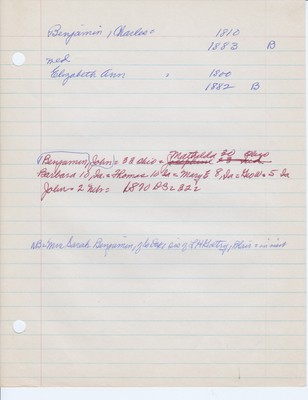 Benjamin, Charles = 1810
1883 B
med
Elizabeth Ann = 1800
1882 B
Benjamin, John = 33 Ohio = Mathilda 30 Ohio
Barbara 10, Ia. = Thomas 10 Ia = Mary E 8, Ia = Geo W = 5 Ia
John = 2 Neb = 1870 DB = 222
B = Mrs Sarah Benjamin,